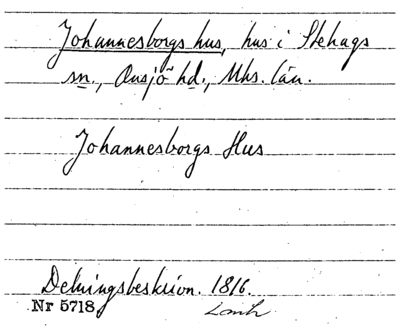 Johannesborgs hus, hus i Stehags
sn., Onsjö hd., Mhs. län.
Johannesborgs Hus
Delningsbeskrivn. 1816.
Nr 5718
Lantm